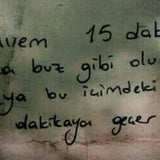 15 dak
buz gibi olu
ya bu içimdeki
dakikaya geçer